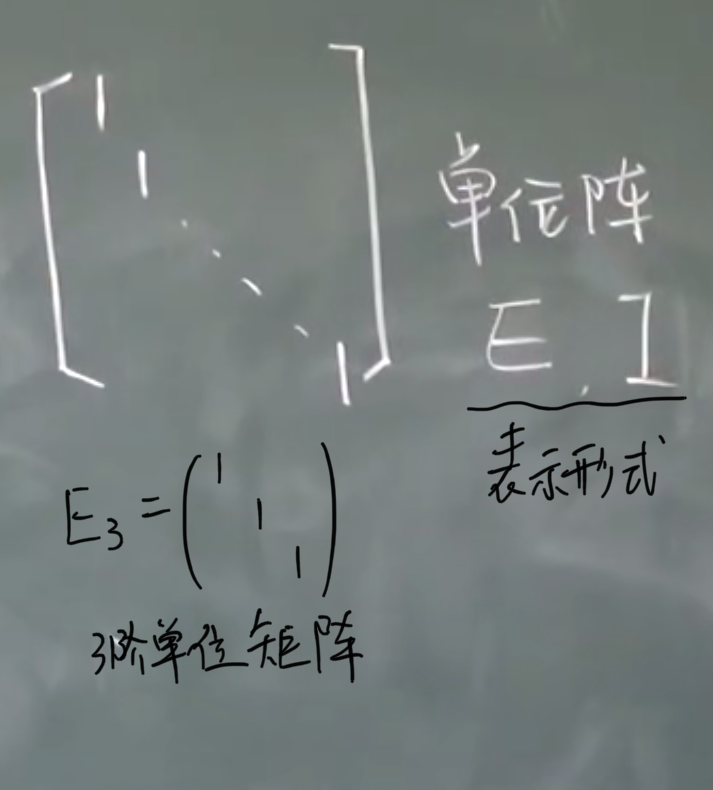 1
1
⋱
1
单位阵
E, I
表示形式
E₃ = (1
1
1)
3阶单位矩阵